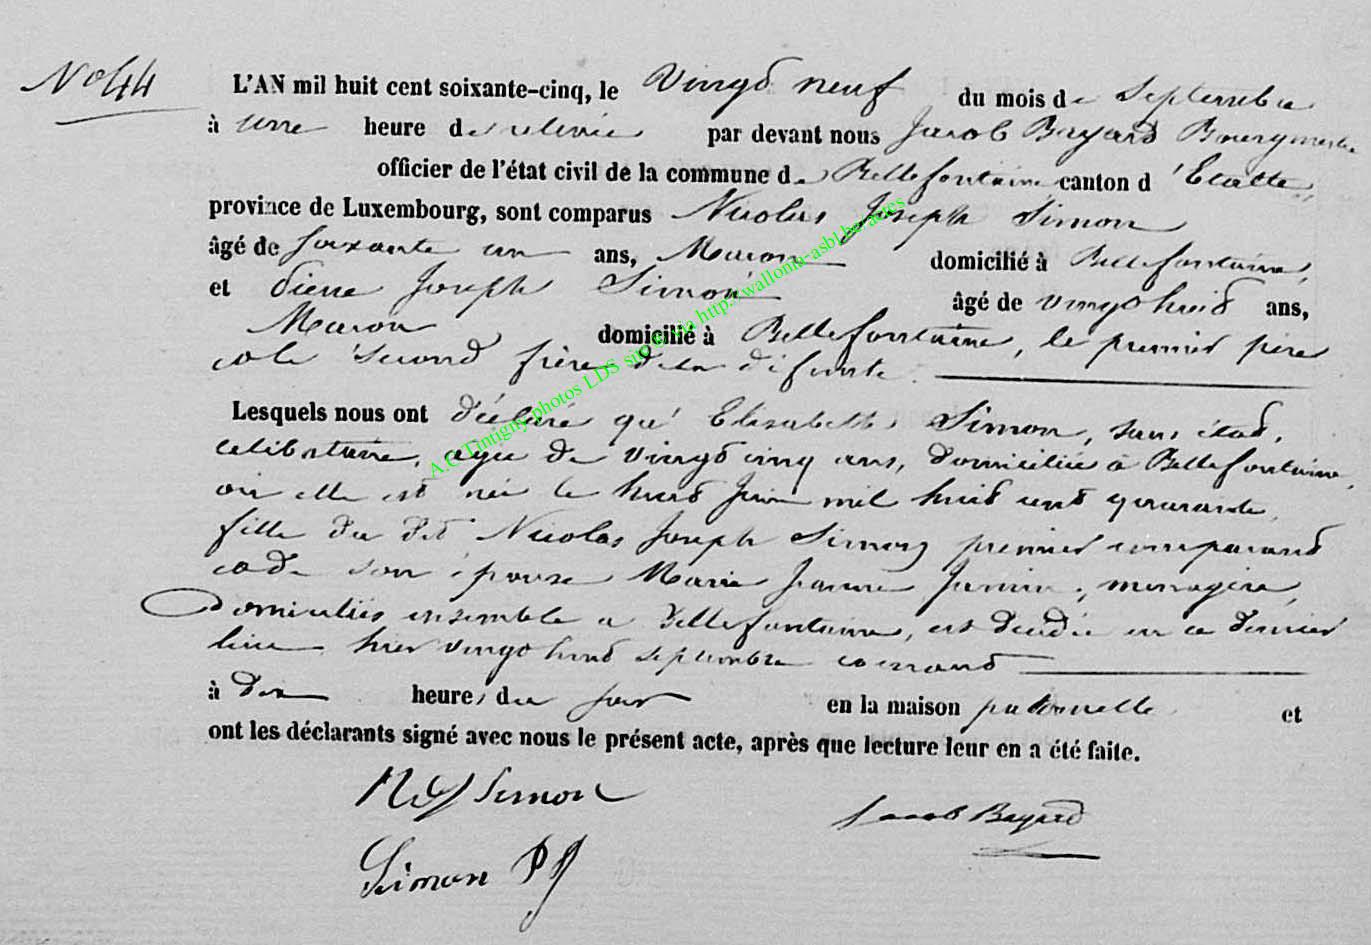 N° 44
L'AN mil huit cent soixante-cinq, le Vingt neuf du mois de Septembre
à une heure de relevée par devant nous Jacob Bayard Bourgmestre
officier de l'état civil de la commune de Bellefontaine canton d'Etalle,
province de Luxembourg, sont comparus Nicolas Joseph Simon
âgé de soixante un ans, Macon domicilié à Bellefontaine,
et Pierre Joseph Simon âgé de vingt huit ans,
Macon domicilié à Bellefontaine, le premier père
et le second frère de la défunte.
Lesquels nous ont déclaré qu'Elisabeth Simon, sans état,
celibataire, agée de vingt cinq ans, domiciliée à Bellefontaine,
où elle est née le huit Juin mil huit cent quarante,
fille du dit Nicolas Joseph Simon premier comparant
et de son épouse Marie Jeanne Janin, menagère,
domiciliés ensemble a Bellefontaine, est décédée en ce dernier
lieu hier vingt huit septembre courant
à dix heures du soir en la maison paternelle et
ont les déclarants signé avec nous le présent acte, après que lecture leur en a été faite.
Simon
Jacob Bayard
Simon PJ
A.C Tintigny photos LDS sur le via http://wallonia-asbl.be/actes